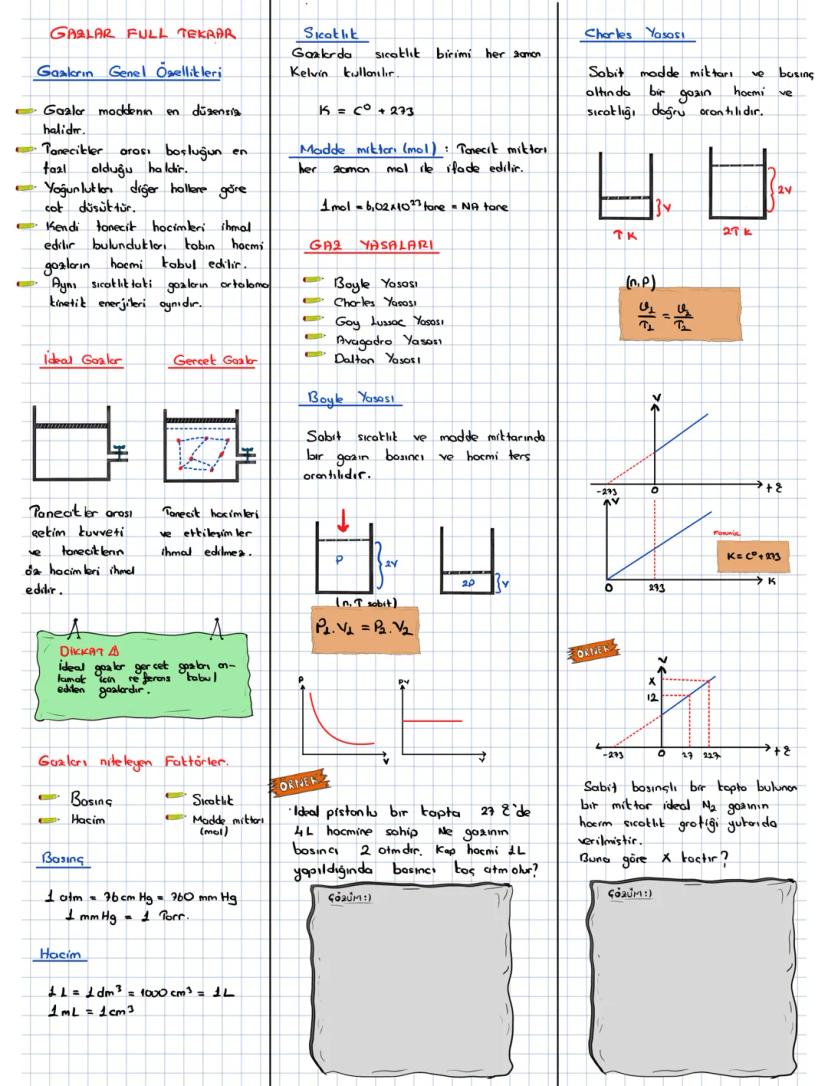 GAZLAR FULL TEKRAR
Gazların Genel Özellikleri
Gazlar maddenin en düzensiz
halidir.
Tanecikler arası boşluğun en
fazl olduğu haldir.
Yoğunlukları diğer hallere göre
çok düşüktür.
Kendi tanecik hacimleri ihmal
edilir bulundukları kabın hacmi
gazların hacmi kabul edilir.
Aynı sıcaklıktaki gazların ortalama
kinetik enerjileri aynıdır.
İdeal Gazlar
Gerçek Gazlar
Tanecikler arası
çekim kuvveti
ve taneciklerin
öz hacimleri ihmal
edilir.
Tanecik hacimleri
ve etkileşimler
ihmal edilmez.
DİKKAT ⚠
İdeal gazlar gerçek gazları an-
lamak için referans kabul
edilen gazlardır.
Gazları niteleyen Faktörler.
Basınç
Sıcaklık
Hacim
Madde miktarı
(mol)
Basınç
1 atm = 76 cm Hg = 760 mm Hg
1 mm Hg = 1 Torr.
Hacim
1 L = 1 dm³ = 1000 cm³ = 1L
1 mL = 1 cm³
Sıcaklık
Gazlarda sıcaklık birimi her zaman
Kelvin kullanılır.
K = C° + 273
Madde miktarı (mol) : Tanecik miktarı
her zaman mol ile ifade edilir.
1 mol = 6,02x10²³ tane = NA tane
GAZ YASALARI
Boyle Yasası
Charles Yasası
Gay Lussac Yasası
Avagadro Yasası
Dalton Yasası
Boyle Yasası
Sabit sıcaklık ve madde miktarında
bir gazın basıncı ve hacmi ters
orantılıdır.
P
2V
2P
V
(n, T sabit)
P₁.V₁ = P₂.V₂
P
V
PV
V
ÖRNEK
İdeal pistonlu bir kapta 27 °C'de
4L hacmine sahip Ne gazının
basıncı 2 atmdir. Kap hacmi 1L
yapıldığında basıncı kaç atm olur?
ÇÖZÜM :)
Charles Yasası
Sabit madde miktarı ve basınç
altında bir gazın hacmi ve
sıcaklığı doğru orantılıdır.
V
2V
T K
2T K
(n,P)
V₁/T₁ = V₂/T₂
V
-273
0
t °C
V
Formül
K = C° + 273
0
273
K
ÖRNEK
V
X
12
-273
0
27
227
t °C
Sabit basınçlı bir kapta bulunan
bir miktar ideal N₂ gazının
hacim sıcaklık grafiği yukarıda
verilmiştir.
Buna göre X kaçtır?
ÇÖZÜM :)